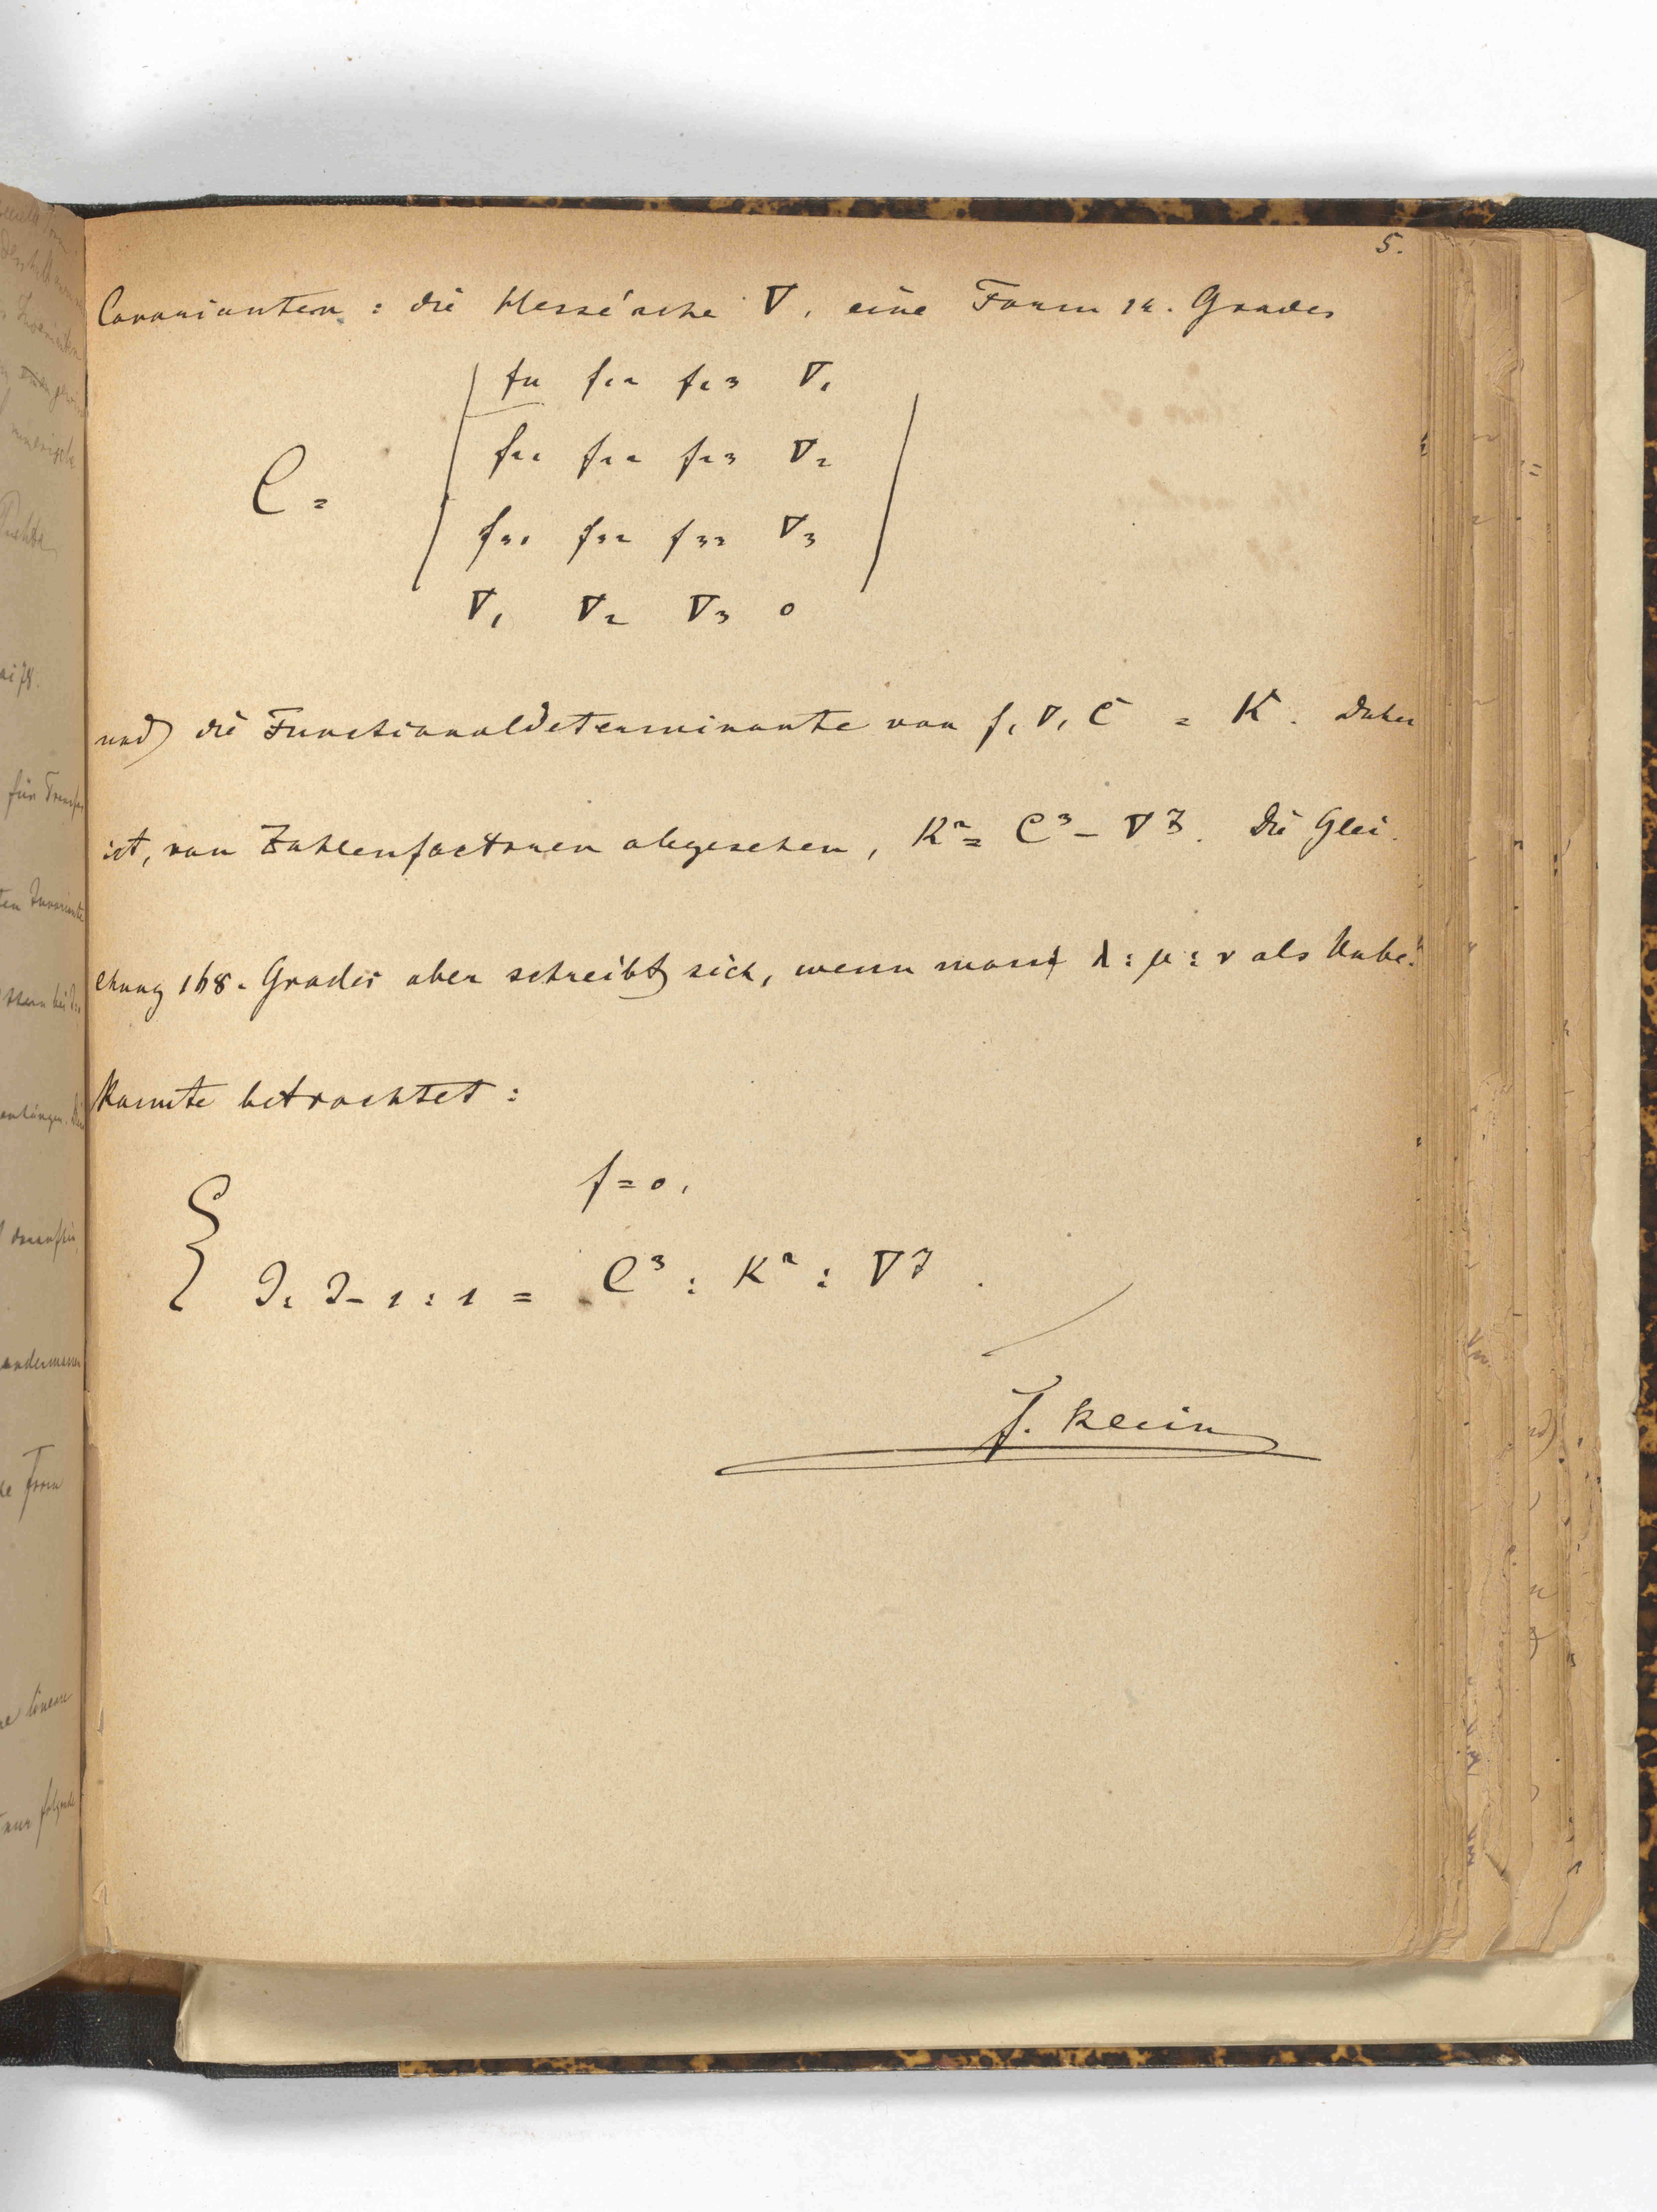 5.
Covarianten : die Hesse'sche ∇, eine Form 14. Grades
f₁₁ f₁₂ f₁₃ ∇₁
f₂₁ f₂₂ f₂₃ ∇₂
C =
f₃₁ f₃₂ f₃₃ ∇₃
∇₁ ∇₂ ∇₃ 0
und die Functionaldeterminante von f, ∇, C = K. Daher
ist, von Zahlenfactoren abgesehen, K² = C³ – ∇⁷. Die Glei-
chung 168. Grades aber schreibt sich, wenn man λ : μ : ν als Unbe-
kannte betrachtet :
f = 0,
J : J – 1 : 1 = C³ : K² : ∇⁷.
F. Klein